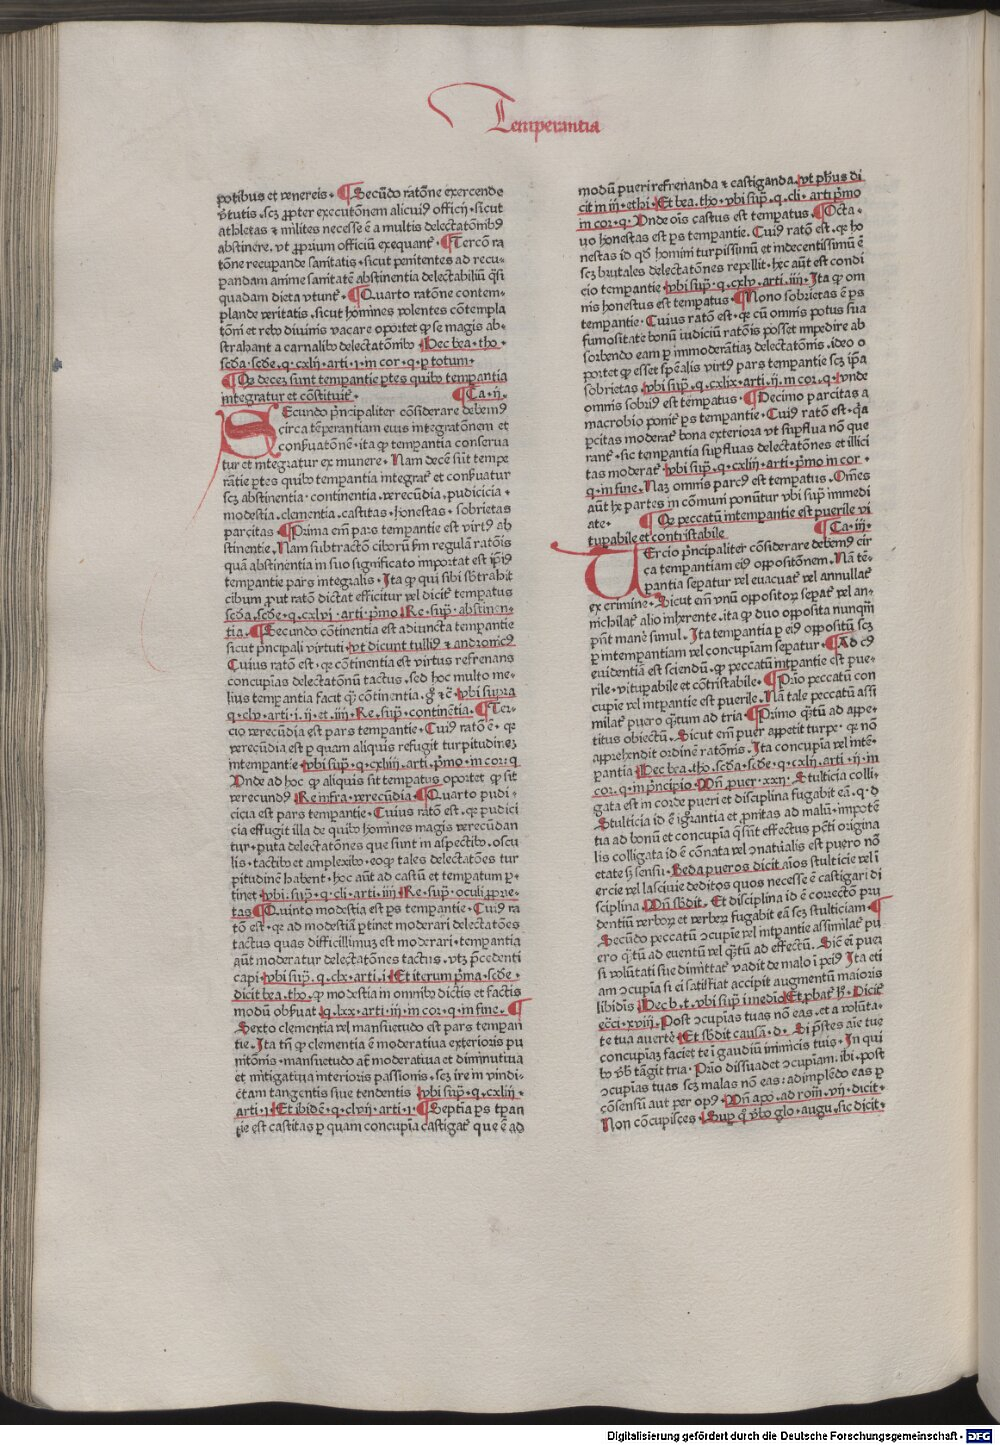 Temperantia
potibus et venereis. ¶ Secūdo ratōne exercende
v̄tutis. scȝ ꝓpter executōnem alicuiꝰ officij. sicut
athletas ⁊ milites necesse ē a multis delectatōnibꝰ
abstinere. vt ꝓprium officiū exequant᷑. ¶ Tercō ra
tōne recuꝑande sanitatis. sicut penitentes ad recu-
pandam anime sanitatē abstinentia delectabiliū q̄si
quadam dieta vtunt᷑. ¶ Quarto ratōne contem-
plande veritatis. sicut homines volentes cōtempla
tōni et rebꝰ diuinis vacare oportet ꝙ se magis ab-
strahant a carnalibꝰ delectatōnibꝰ. Hec bea. tho.
scd̄a. scd̄e. q. cxlij. arti. i. in cor. q. ꝑ totum.
¶ Qꝫ decez sunt temꝑantie ꝑtes quibꝰ temꝑantia
integratur et cōstituit᷑. ¶ Ca. ij.
SEcundo pn̄cipaliter cōsiderare debemꝰ
circa tēꝑerantiam eius integratōnem et
conẜuatōnē. ita ꝙ temꝑantia conserua
tur et integratur ex munere. Nam decē sūt tempe
rātie ꝑtes quibꝰ temꝑantia integrat᷑ et conẜuatur
scȝ abstinentia. continentia. verecūdia. pudicicia.
modestia. clementia. castitas. honestas. sobrietas
parcitas. ¶ Prima em̄ pars temꝑantie est virtꝰ ab
stinentie. Nam subtractō ciborū ẜm regulā ratōis
quā abstinentia in suo significato importat est ip̄iꝰ
temꝑantie pars integralis. Ita ꝙ qui sibi sb̄trabit
cibum ꝓut ratō dictat efficitur vel dicit᷑ temꝑatus
scd̄a. scd̄e. q. cxlvi. arti. pͥmo. Re. sup̄. abstinen-
tia. ¶ Secundo cōtinentia est adiuncta temꝑantie
sicut pn̄cipali virtuti. vt dicunt tulliꝰ ⁊ andronicꝰ
Cuius ratō est. qꝛ cōtinentia est virtus refrenans
concupīas delectatōnū tactus. sed hoc multo me-
lius temꝑantia facit q̄ cōtinentia. g̊ ⁊c̄. vbi supra
q. clv. arti. i. ij. et. iiij. Re. sup̄. continētia. ¶ Ter-
cio verecūdia est pars temꝑantie. Cuiꝰ ratō ē. qꝛ
verecūdia est ꝑ quam aliquis refugit turpitudineȝ
intemꝑantie. vbi sup̄. q. cxliiij. arti. pͥmo. in cor. q
Vnde ad hoc ꝙ aliquis sit temꝑatus oportet ꝙ sit
verecundꝰ. Re infra. verecūdia. ¶ Quarto pudi-
cicia est pars temꝑantie. Cuius ratō est. qꝛ pudici
cia effugit illa de quibꝰ homines magis verecūdan
tur. puta delectatōnes que sunt in aspectibꝰ. oscu
lis. tactibꝰ et amplexibꝰ. eo ꝙ tales delectatōes tur
pitudinē habent. hoc aūt ad castū et temꝑatum ꝑ-
tinet. vbi. sup̄. q. cli. arti. iiij. Re. sup̄. oculi ꝓprie-
tas. ¶ Quinto modestia est ꝑs temꝑantie. Cuiꝰ ra
tō est. qꝛ ad modestiā ꝑtinet moderari delectatōes
tactus quas difficillimuȝ est moderari. temꝑantia
aūt moderatur delectatōnes tactus. vtȝ p̄cedenti
capi. vbi sup̄. q. clx. arti. i. Et iterum pͥma. scd̄e.
dicit bea. tho. ꝙ modestia in omnibꝰ dictis et factis
modū obẜuat. q. lxx. arti. iij. in cor. q. in fine. ¶
Sexto clementia vel mansuetudo est pars tempan
tie. Ita tn̄ ꝙ clementia ē moderatiua exterioris pu
nitōnis. mansuetudo aū moderatiua et diminutiua
et mitigatiua interioris passionis. scȝ ire in vindi-
ctam tangentis siue tendentis. vbi sup̄. q. cxliij.
arti. i. Et ibidē. q. clvij. arti. i. ¶ Septīa ꝑs tꝑan
tie est castitas ꝑ quam concupīa castigat᷑ que ē ad
modū pueri refrenanda ⁊ castiganda. vt ph̄us di
cit in iij. ethi. Et bea. tho. vbi sup̄. q. cli. arti pͥmo
in cor. q. Vnde oīs castus est temꝑatus. ¶ Octa-
uo honestas est ꝑs temꝑantie. Cuiꝰ ratō est. qꝛ ho
nestas id qd̄ homini turpissimū et indecentissimū ē
scȝ brutales delectatōnes repellit. hec aūt est condi
cio temꝑantie. vbi sup̄. q. cxlv. arti. iiij. Ita ꝙ om
nis honestus est temꝑatus. ¶ Nono sobrietas ē ꝑs
temꝑantie. Cuius ratō est. qꝛ cū omnis potus sua
fumositate bonū iudiciū ratōis posset impedire ab
sorbendo eam ꝑ immoderātiaȝ delectatōnis. ideo o
portet ꝙ esset sp̄ealis virtꝰ pars temꝑantie scȝ ip̄a
sobrietas. vbi sup̄. q. cxlix. arti. ij. in cor. q. vnde
omnis sobriꝰ est temꝑatus. ¶ Decimo parcitas a
macrobio ponit᷑ ꝑs temꝑantie. Cuiꝰ ratō est. q̄a
ꝑcitas moderat᷑ bona exteriora vt suꝑflua nō que
rant᷑. sic temꝑantia suꝑfluas delectatōnes et illici
tas moderat᷑. vbi sup̄. q. cxliij. arti. pͥmo in cor.
q. in fine. Naȝ omnis parcꝰ est temꝑatus. Om̄es
aūt he partes in cōmuni ponūtur vbi sup̄ immedi
ate. ¶ Qꝫ peccatū intemꝑantie est puerile vi
tuꝑabile et contristabile. ¶ Ca. iij.
TErcio pn̄cipaliter cōsiderare debemꝰ cir
ca temꝑantiam eiꝰ oppositōnem. Nā tē-
ꝑantia seꝑatur vel euacuat᷑ vel annullat᷑
ex crimine. Sicut em̄ vnū oppositoꝝ seꝑat᷑ vel an-
nichilat᷑ alio inherente. ita ꝙ duo opposita nunqͣȝ
pn̄t manē simul. Ita temꝑantia ꝑ eiꝰ oppositū scȝ
ꝑ intemꝑantiam vel concupīam seꝑatur. ¶ Ad cꝰ
euidentiā est sciendū. ꝙ peccatū intꝑantie est pue-
rile. vituꝑabile et cōtristabile. ¶ Prīo peccatū con
cupīe vel intꝑantie est puerile. Nā tale peccatū assi
milat᷑ puero q̄tum ad tria. ¶ Primo q̄tū ad appe-
titus obiectū. Sicut em̄ puer appetit turpe. qꝛ nō
apprehendit ordinē ratōnis. Ita concupīa vel intē-
ꝑantia. Hec bea. tho. scd̄a. scd̄e. q. cxlij. arti. ij. in
cor. q. in pͥncipio. Vn̄ ꝓuer. xxij. Stulticia colli-
gata est in corde pueri et disciplina fugabit eā. q. d
Stulticia id ē ignrantia et ꝓnitas ad malū. impotē
tia ad bonū et concupīa q̄ sūt effectus pctī origina
lis colligata id ē cōnata vel ↄnatūalis est puero nō
etate ẜȝ sensu. Beda pueros dicit aīos stulticie vel ī
ercie vel lasciuie deditos quos necesse ē castigari di
sciplina. Vn̄ sb̄dit. Et disciplina id ē correctō pru
dentiū verboꝝ et verbeꝝ fugabit eā scȝ stulticiam. ¶
Secūdo peccatū ↄcupīe vel intꝑantie assimilat᷑ pu
ero q̄tū ad euentū vel q̄tū ad effectū. Sic̄ ei̅ puer
si volūtati sue dimittat᷑ vadit de malo ī peiꝰ. Ita eti
am ↄcupīa si ei satisfiat accipit augmentū maioris
libidīs. Hec b. t. vbi sup̄ ī medio. Et ꝓbat᷑ h̄. Dicit᷑
ecc̄i. xviij. Post ↄcupīas tuas nō eas. et a volūta-
te tua auerte. Et sb̄dit causā. d. Si p̄stes aīe tue
concupīaȝ faciet te ī gaudiū inimicis tuis. In qui
bꝰ v̄bꝰ tāgit tria. Prīo dissuadet ↄcupīam. ibi. post
ↄcupīas tuas scȝ malas nō eas: adimplēdo eas ꝑ
cōsensū aut per opꝰ. Vn̄ apo. ad roīn. vij. dicit.
Non cōcupisces. Suꝑ q̊ v̄bo glo. augu. sic dicit.
Digitalisierung gefördert durch die Deutsche Forschungsgemeinschaft - DFG